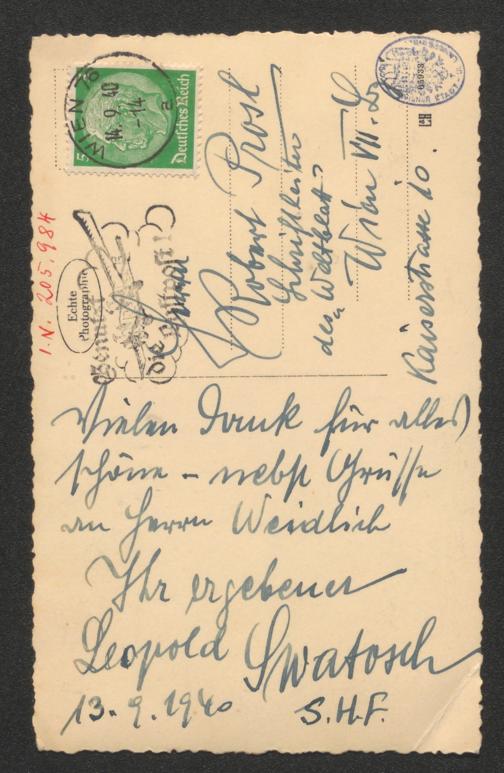 WIEN 76
14. 9. 40
-14
a
5
Deutsches Reich
Benützt
die Luftpost!
Echte
Photographie
I.N. 205.984
65933
Herrn
Robert Prosl
Schriftleiter
des Weltblatt
Wien VII.
Kaiserstrasse 10.
Vielen Dank für alles
schöne – nebst Grüsse
an Herrn Weidlich
Ihr ergebener
Leopold Swatosch
13.9.1940 S.H.F.